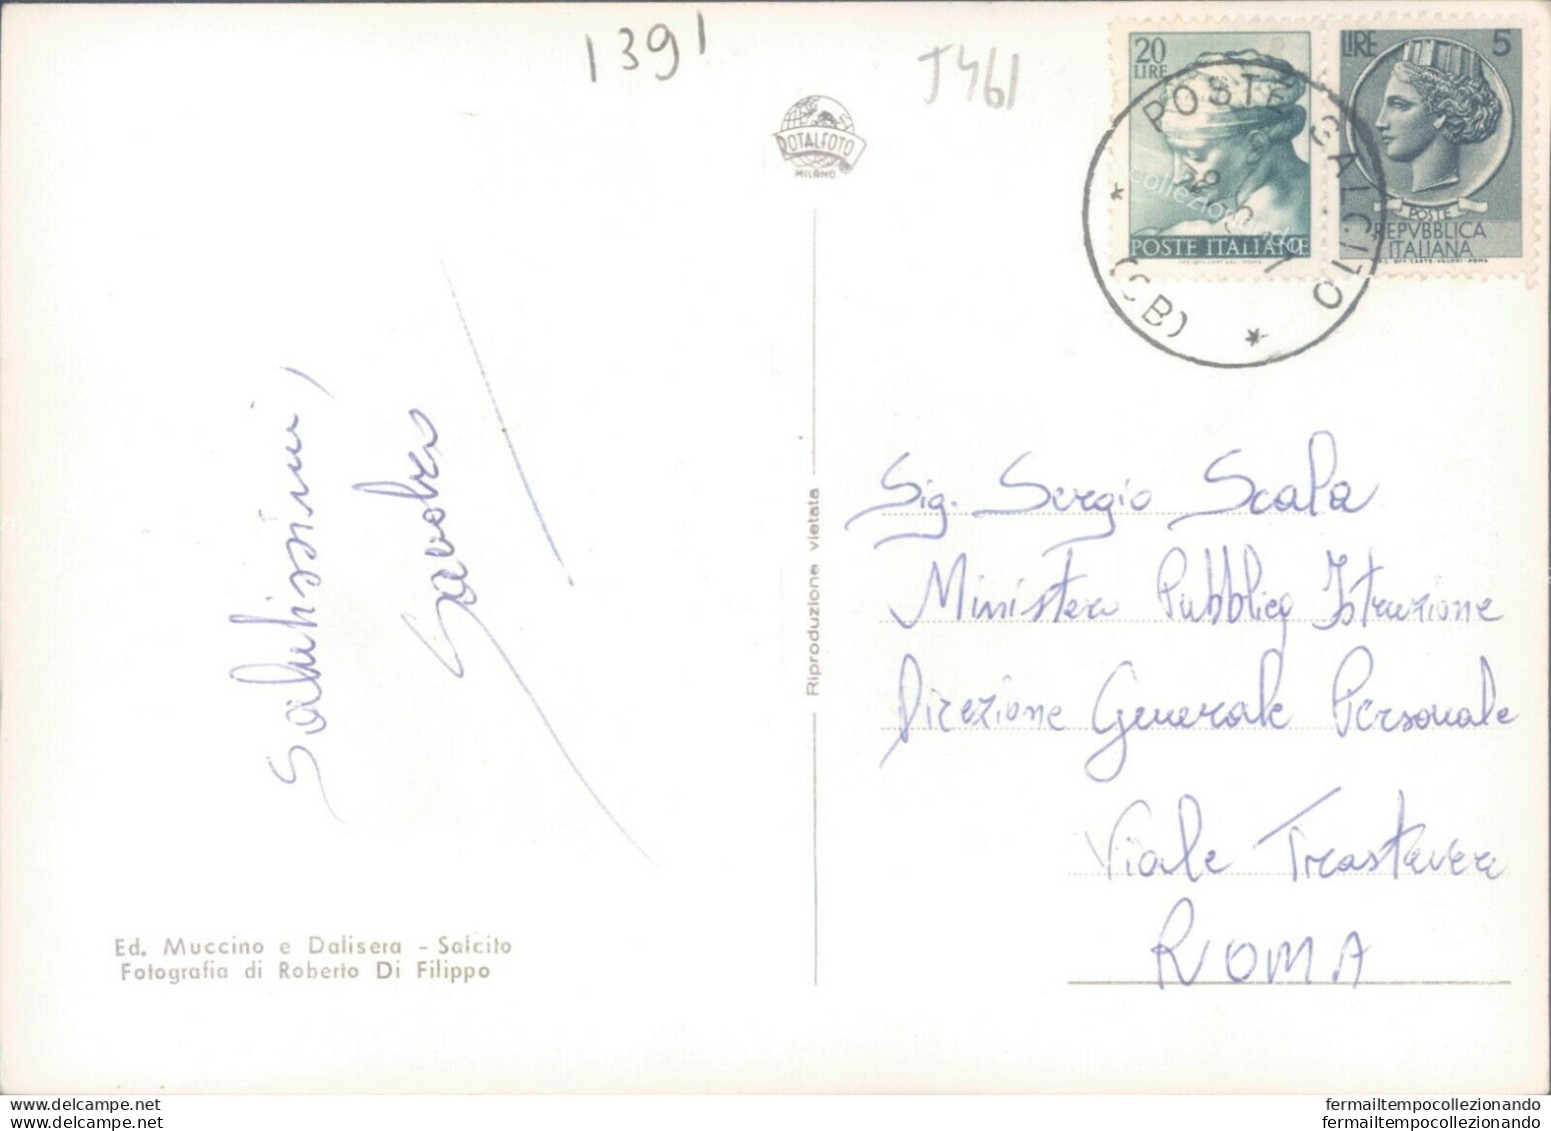 1391
J461
ROTALFOTO
MILANO
20
LIRE
POSTE ITALIANE
LIRE 5
POSTE
REPVBBLICA
ITALIANA
I.P.S. OFF. CARTE-VALORI-ROMA
POSTE SALCITO
(CB)
collezionando
Salutissimi,
Sig. Sergio Scala
Ministero Pubblica Istruzione
Direzione Generale Personale
Viale Trastevere
ROMA
Riproduzione vietata
Ed. Muccino e Dalisera - Salcito
Fotografia di Roberto Di Filippo
fermailtempocollezionando
fermailtempocollezionando
fermailtempocollezionando
fermailtempocollezionando